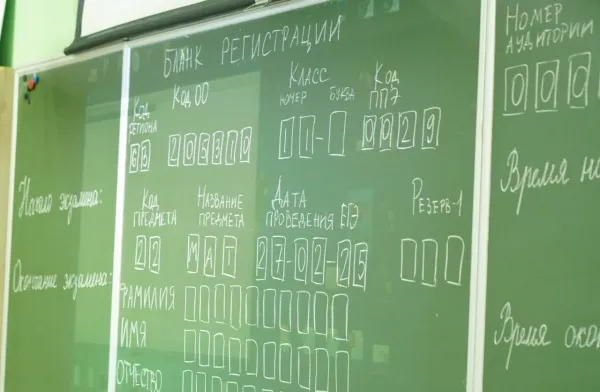 БЛАНК РЕГИСТРАЦИИ
Код РЕГИОНА
63
Код ОО
206310
Класс
НОМЕР БУКВА
11-
Код ППЭ
0029
Код ПРЕДМЕТА
22
НАЗВАНИЕ ПРЕДМЕТА
МАТ
ДАТА ПРОВЕДЕНИЯ ЕГЭ
27-02-25
РЕЗЕРВ-1
ФАМИЛИЯ
ИМЯ
ОТЧЕСТВО
Начало экзамена:
Окончание экзамена:
НОМЕР
АУДИТОРИИ
000
Время
Время